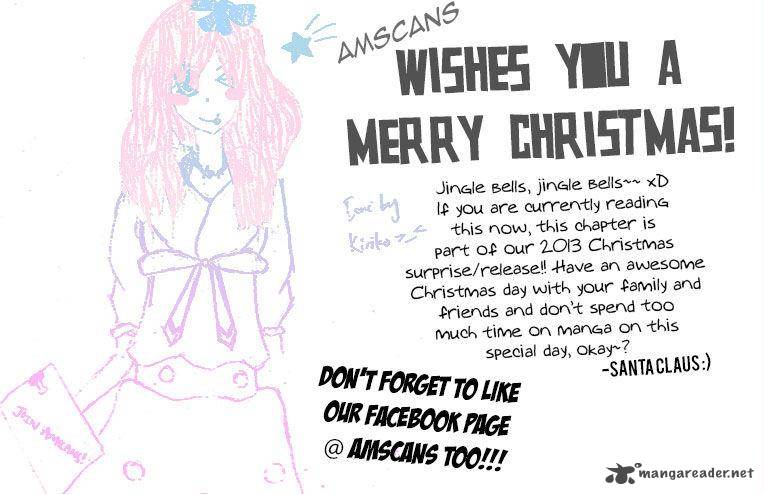 AMSCANS
WISHES YOU A
MERRY CHRISTMAS!
Jingle Bells, jingle Bells~~ xD
If you are currently reading
this now, this chapter is
part of our 2013 Christmas
surprise/release!! Have an awesome
Christmas day with your family and
friends and don't spend too
much time on manga on this
special day, okay~?
-SANTA CLAUS:)
Done by
Kiriko >_<
JOIN AMSCANS!
DON'T FORGET TO LIKE
OUR FACEBOOK PAGE
@ AMSCANS TOO!!!
mangareader.net